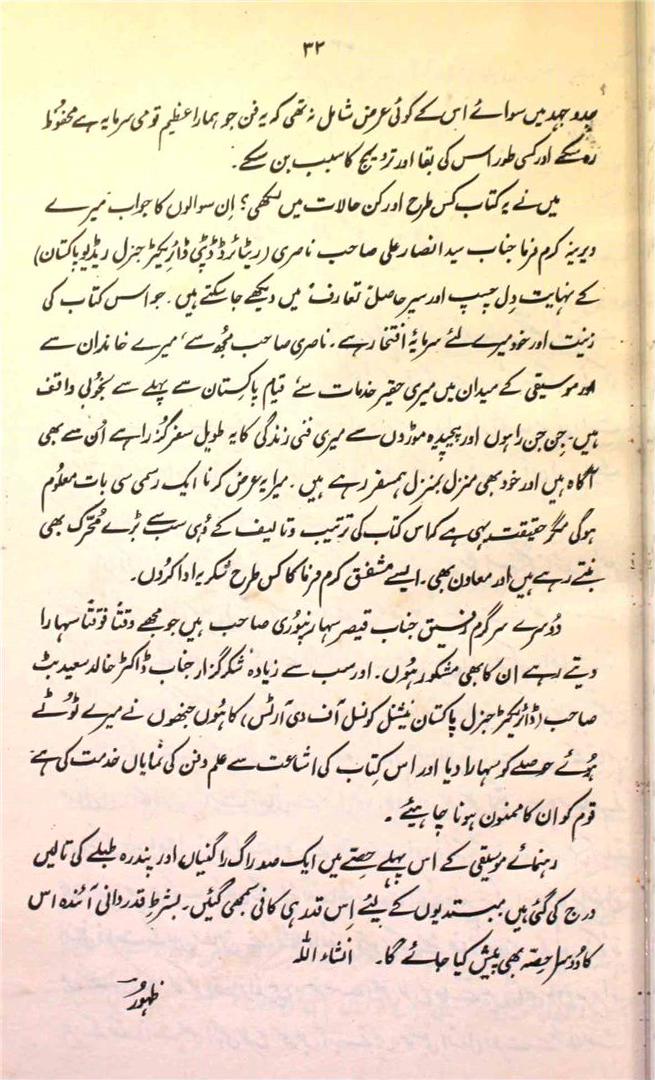 ۳۲
جدوجہد میں سوائے اس کے کوئی غرض شامل نہ تھی کہ یہ فن جو ہمارا عظیم قومی سرمایہ ہے محفوظ
رہ سکے اور کسی طور اس کی بقا اور ترویج کا سبب بن سکے۔
میں نے یہ کتاب کس طرح اور کن حالات میں لکھی؟ اِن سوالوں کا جواب میرے
دیرینہ کرم فرما جناب سید انصار علی صاحب ناصری (ریٹائرڈ ڈپٹی ڈائریکٹر جنرل ریڈیو پاکستان)
کے نہایت دِل چسپ اور سیر حاصل تعارف میں دیکھے جا سکتے ہیں۔ جو اس کتاب کی
زینت اور خود میرے لئے سرمایۂ افتخار ہے۔ ناصری صاحب مجھ سے، میرے خاندان سے
اور موسیقی کے میدان میں میری حقیر خدمات سے قیام پاکستان سے پہلے سے بخوبی واقف
ہیں۔ جن جن راہوں اور پیچیدہ موڑوں سے میری فنی زندگی کا یہ طویل سفر گزرا ہے اُن سے بھی
آگاہ ہیں اور خود بھی منزل بمنزل ہمسفر رہے ہیں۔ میرا یہ عرض کرنا ایک رسمی سی بات معلوم
ہوگی مگر حقیقت یہی ہے کہ اس کتاب کی ترتیب و تالیف کے وُہی سب سے بڑے مُحرک بھی
بنتے رہے ہیں اور معاون بھی۔ ایسے مشفق کرم فرما کا کس طرح شکریہ ادا کروں۔
دُوسرے سرگرم رفیق جناب قیصر سہارنپوری صاحب ہیں جو مجھے وقتاً فوقتاً سہارا
دیتے رہے ان کا بھی مشکور ہُوں۔ اور سب سے زیادہ شکر گزار جناب ڈاکٹر خالد سعید بٹ
صاحب (ڈائریکٹر جنرل پاکستان نیشنل کونسل آف دی آرٹس) کا ہُوں جنھوں نے میرے ٹوٹے
ہُوئے حوصلے کو سہارا دیا اور اس کتاب کی اشاعت سے علم و فن کی نمایاں خدمت کی ہے
قوم کو ان کا ممنون ہونا چاہیئے۔
رہنمائے موسیقی کے اس پہلے حصّے میں ایک صد راگ راگنیاں اور پندرہ طبلے کی تالیں
درج کی گئی ہیں مبتدیوں کے لیئے اِس قدر ہی کافی سمجھی گئیں۔ بشرطِ قدردانی آئندہ اس
کا دُوسرا حصّہ بھی پیش کیا جائے گا۔ انشاء اللہ
ظہور